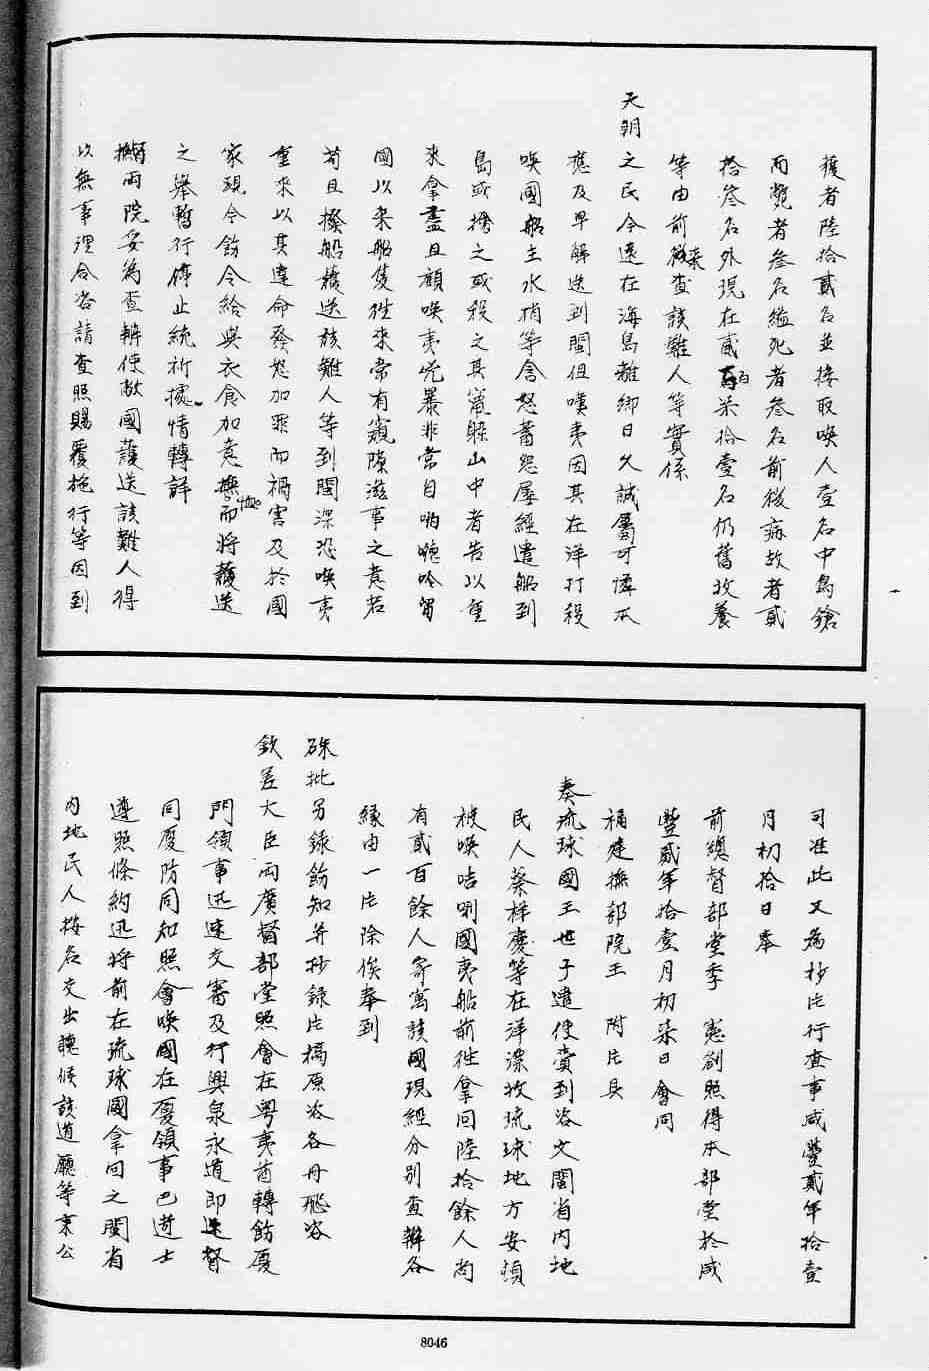 獲者陸拾貳名並接取㖞人壹名中鳥鎗
而斃者叁名縊死者叁名前後病故者貳
拾叁名外現在貳百柒拾壹名仍舊收養
等由前來查該難人等實係
天朝之民今遠在海島離鄉日久誠屬可憐本
應及早解送到閩但嘆夷因其在洋打殺
㖞國船主水梢等含怒蓄怨屢經遣船到
島或擄之或殺之其竄躲山中者告以重
來拿盡且顧㖞夷兇暴非常自喲嗯呤留
國以來船隻徃來常有窺隙滋事之意若
苟且撥船護送該難人等到閩深恐㖞夷
重來以其違命發怒加罪而禍害及於國
家現今飭令給與衣食加意撫恤而將護送
之舉暫行停止統祈據情轉詳
撫兩院妥為查辦使敝國護送該難人得
以無事理合咨請查照賜覆施行等因到
司准此又為抄片行查事咸豐貳年拾壹
月初拾日奉
前總督部堂季 憲劄照得本部堂於咸
豐貳年拾壹月初柒日會同
福建撫部院王 附片具
奏琉球國王世子遣使賫到咨文閩省內地
民人蔡祥慶等在洋漂收琉球地方安頓
被㖞咭唎國夷船前徃拿回陸拾餘人尚
有貳百餘人寄寓該國現經分別查辦各
緣由一片除俟奉到
硃批另錄飭知并抄錄片稿原咨各冊飛咨
欽差大臣兩廣督部堂照會在粵夷酋轉飭厦
門領事迅速交審及行興泉永道即速督
同厦防同知照會㖞國在厦領事巴逰士
遵照條約迅將前在琉球國拿回之閩省
內地民人按名交出聽候該道廳等秉公
8046